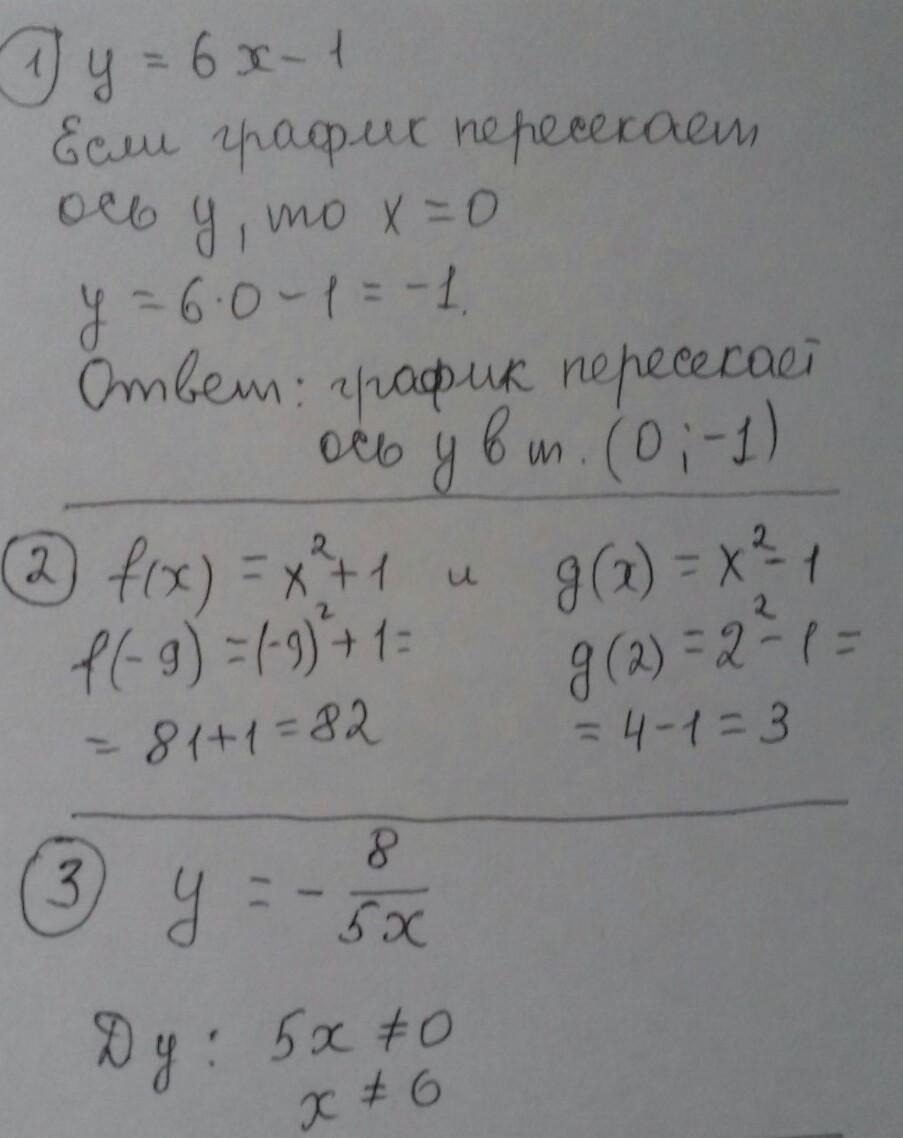 1) y = 6x - 1
Если график пересекает
ось y, то x = 0
y = 6·0 - 1 = -1.
Ответ: график пересекает
ось y в т. (0; -1)
2 f(x) = x² + 1 и g(x) = x² - 1
f(-9) = (-9)² + 1 = g(2) = 2² - 1 =
= 81 + 1 = 82 = 4 - 1 = 3
3 y = - 8/5x
Dy: 5x ≠ 0
x ≠ 0